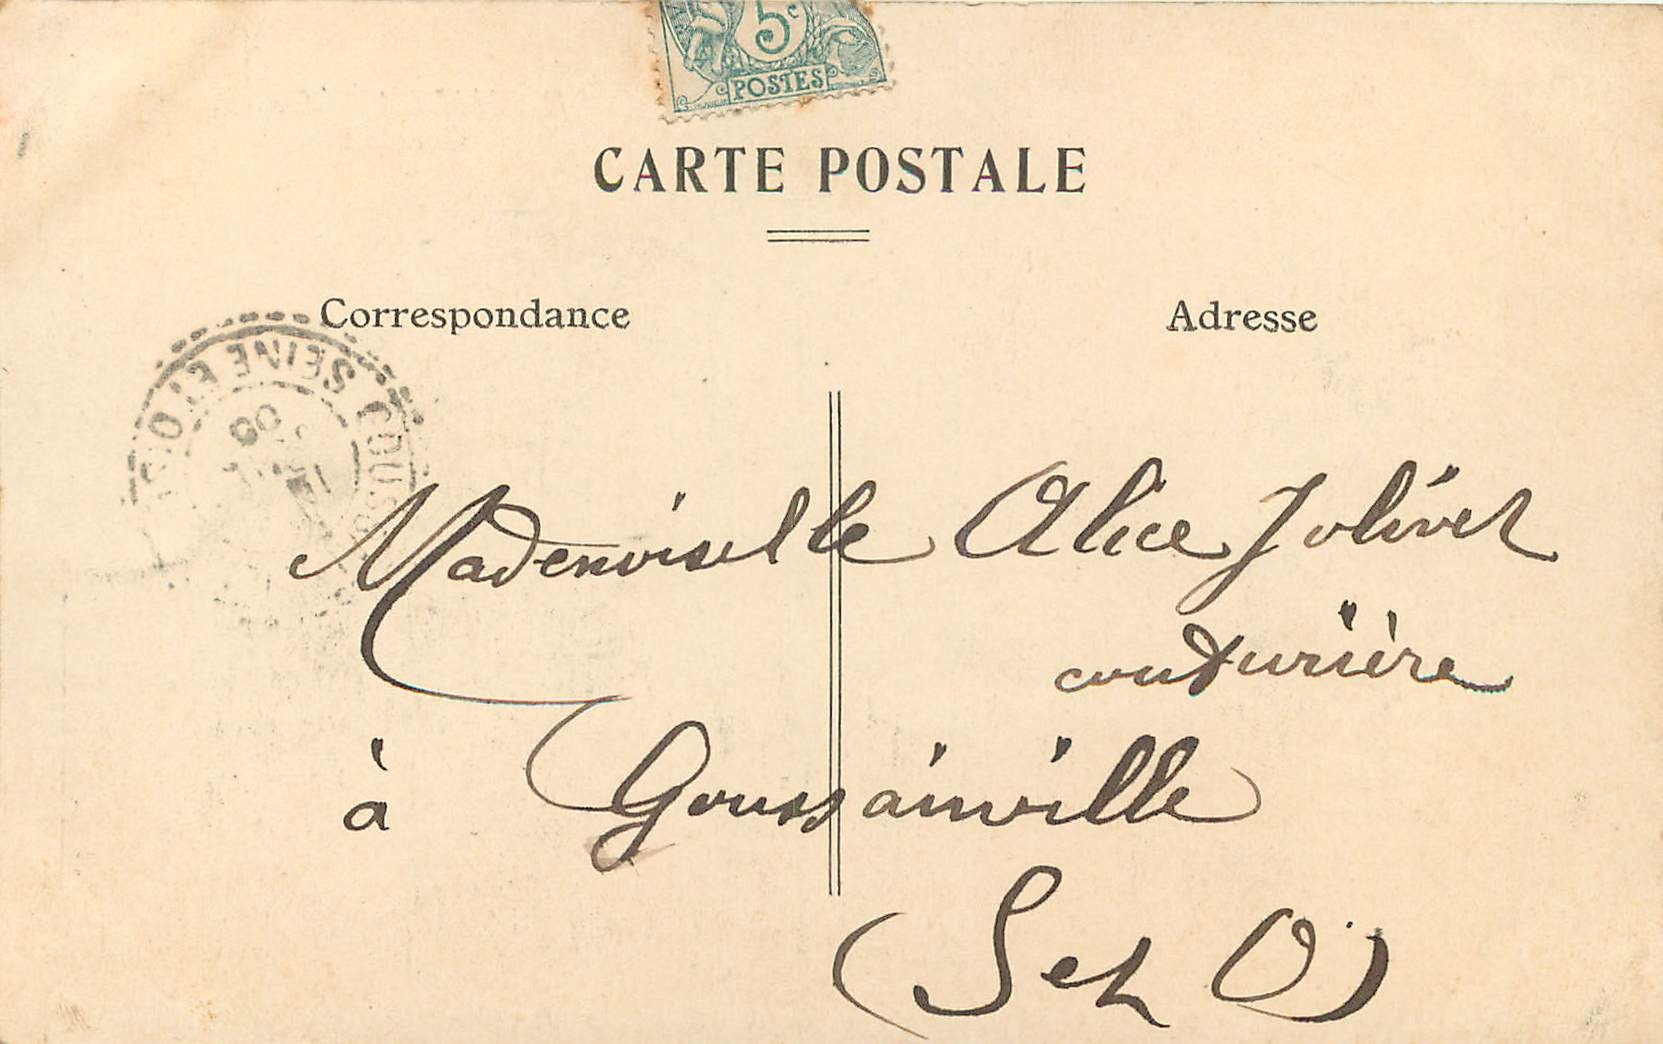 5c
POSTES
CARTE POSTALE
Correspondance
Adresse
SEINE ET O
Mademoiselle Alice Jolivet
couturière
à Goussainville
(S et O)